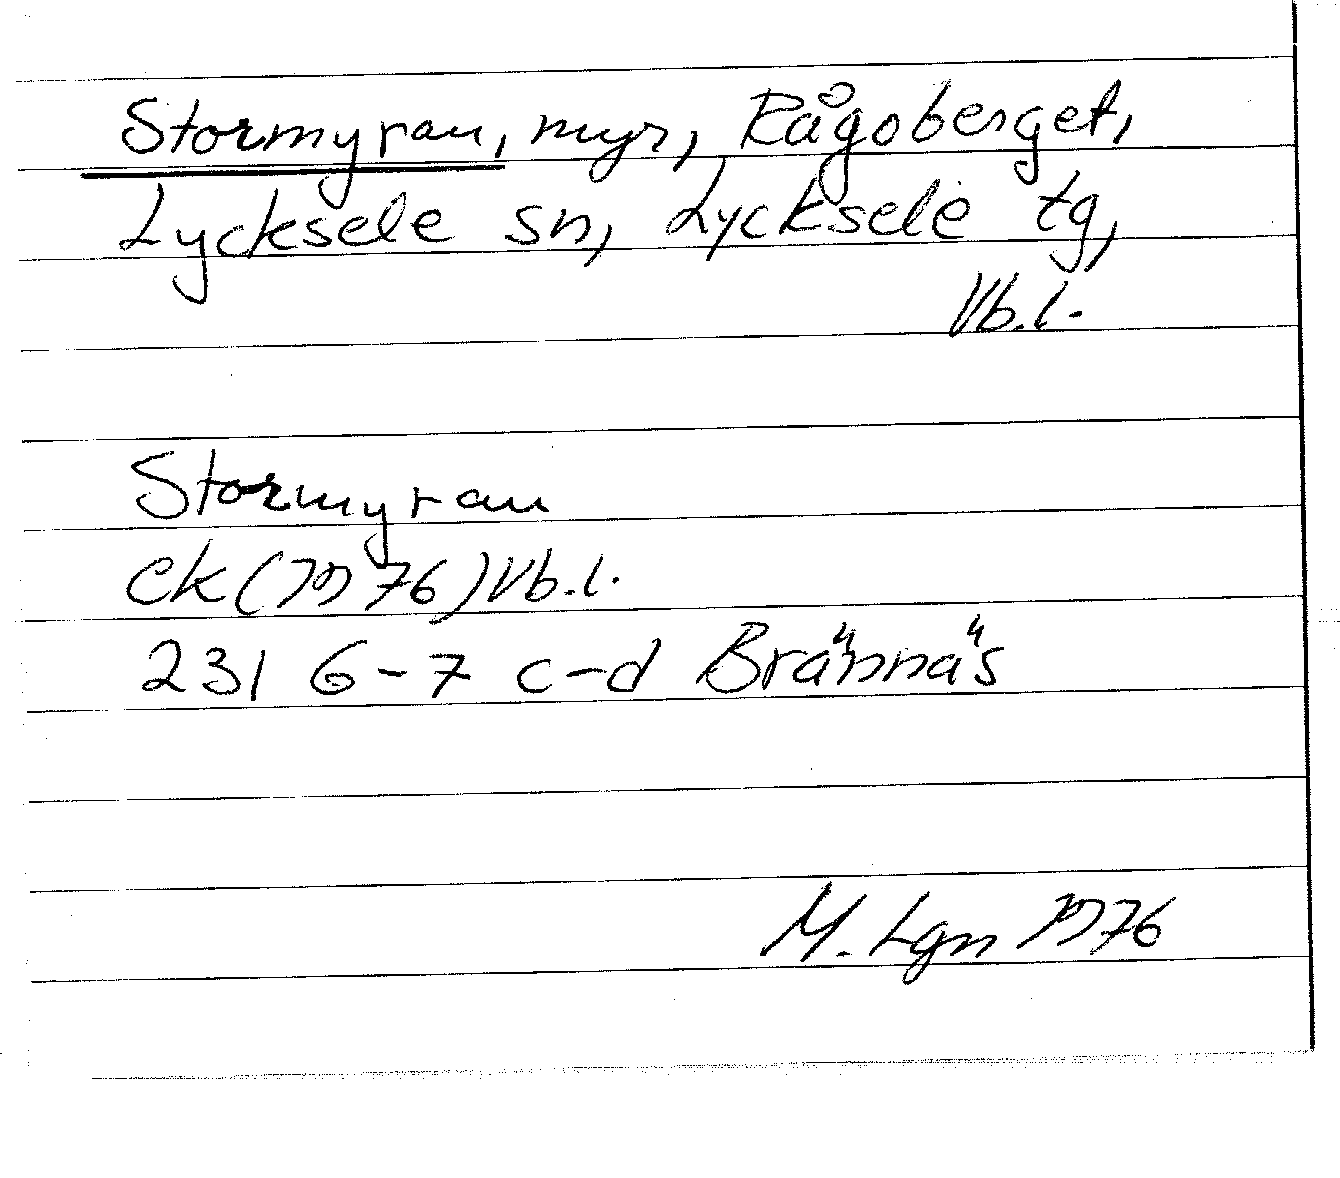 Stormyran, myr, Rågoberget,
Lycksele sn, Lycksele tg,
Vb.l.
Stormyran
ek (1976) Vb.l.
23I 6-7 c-d Brännäs
M. Lgn 1976